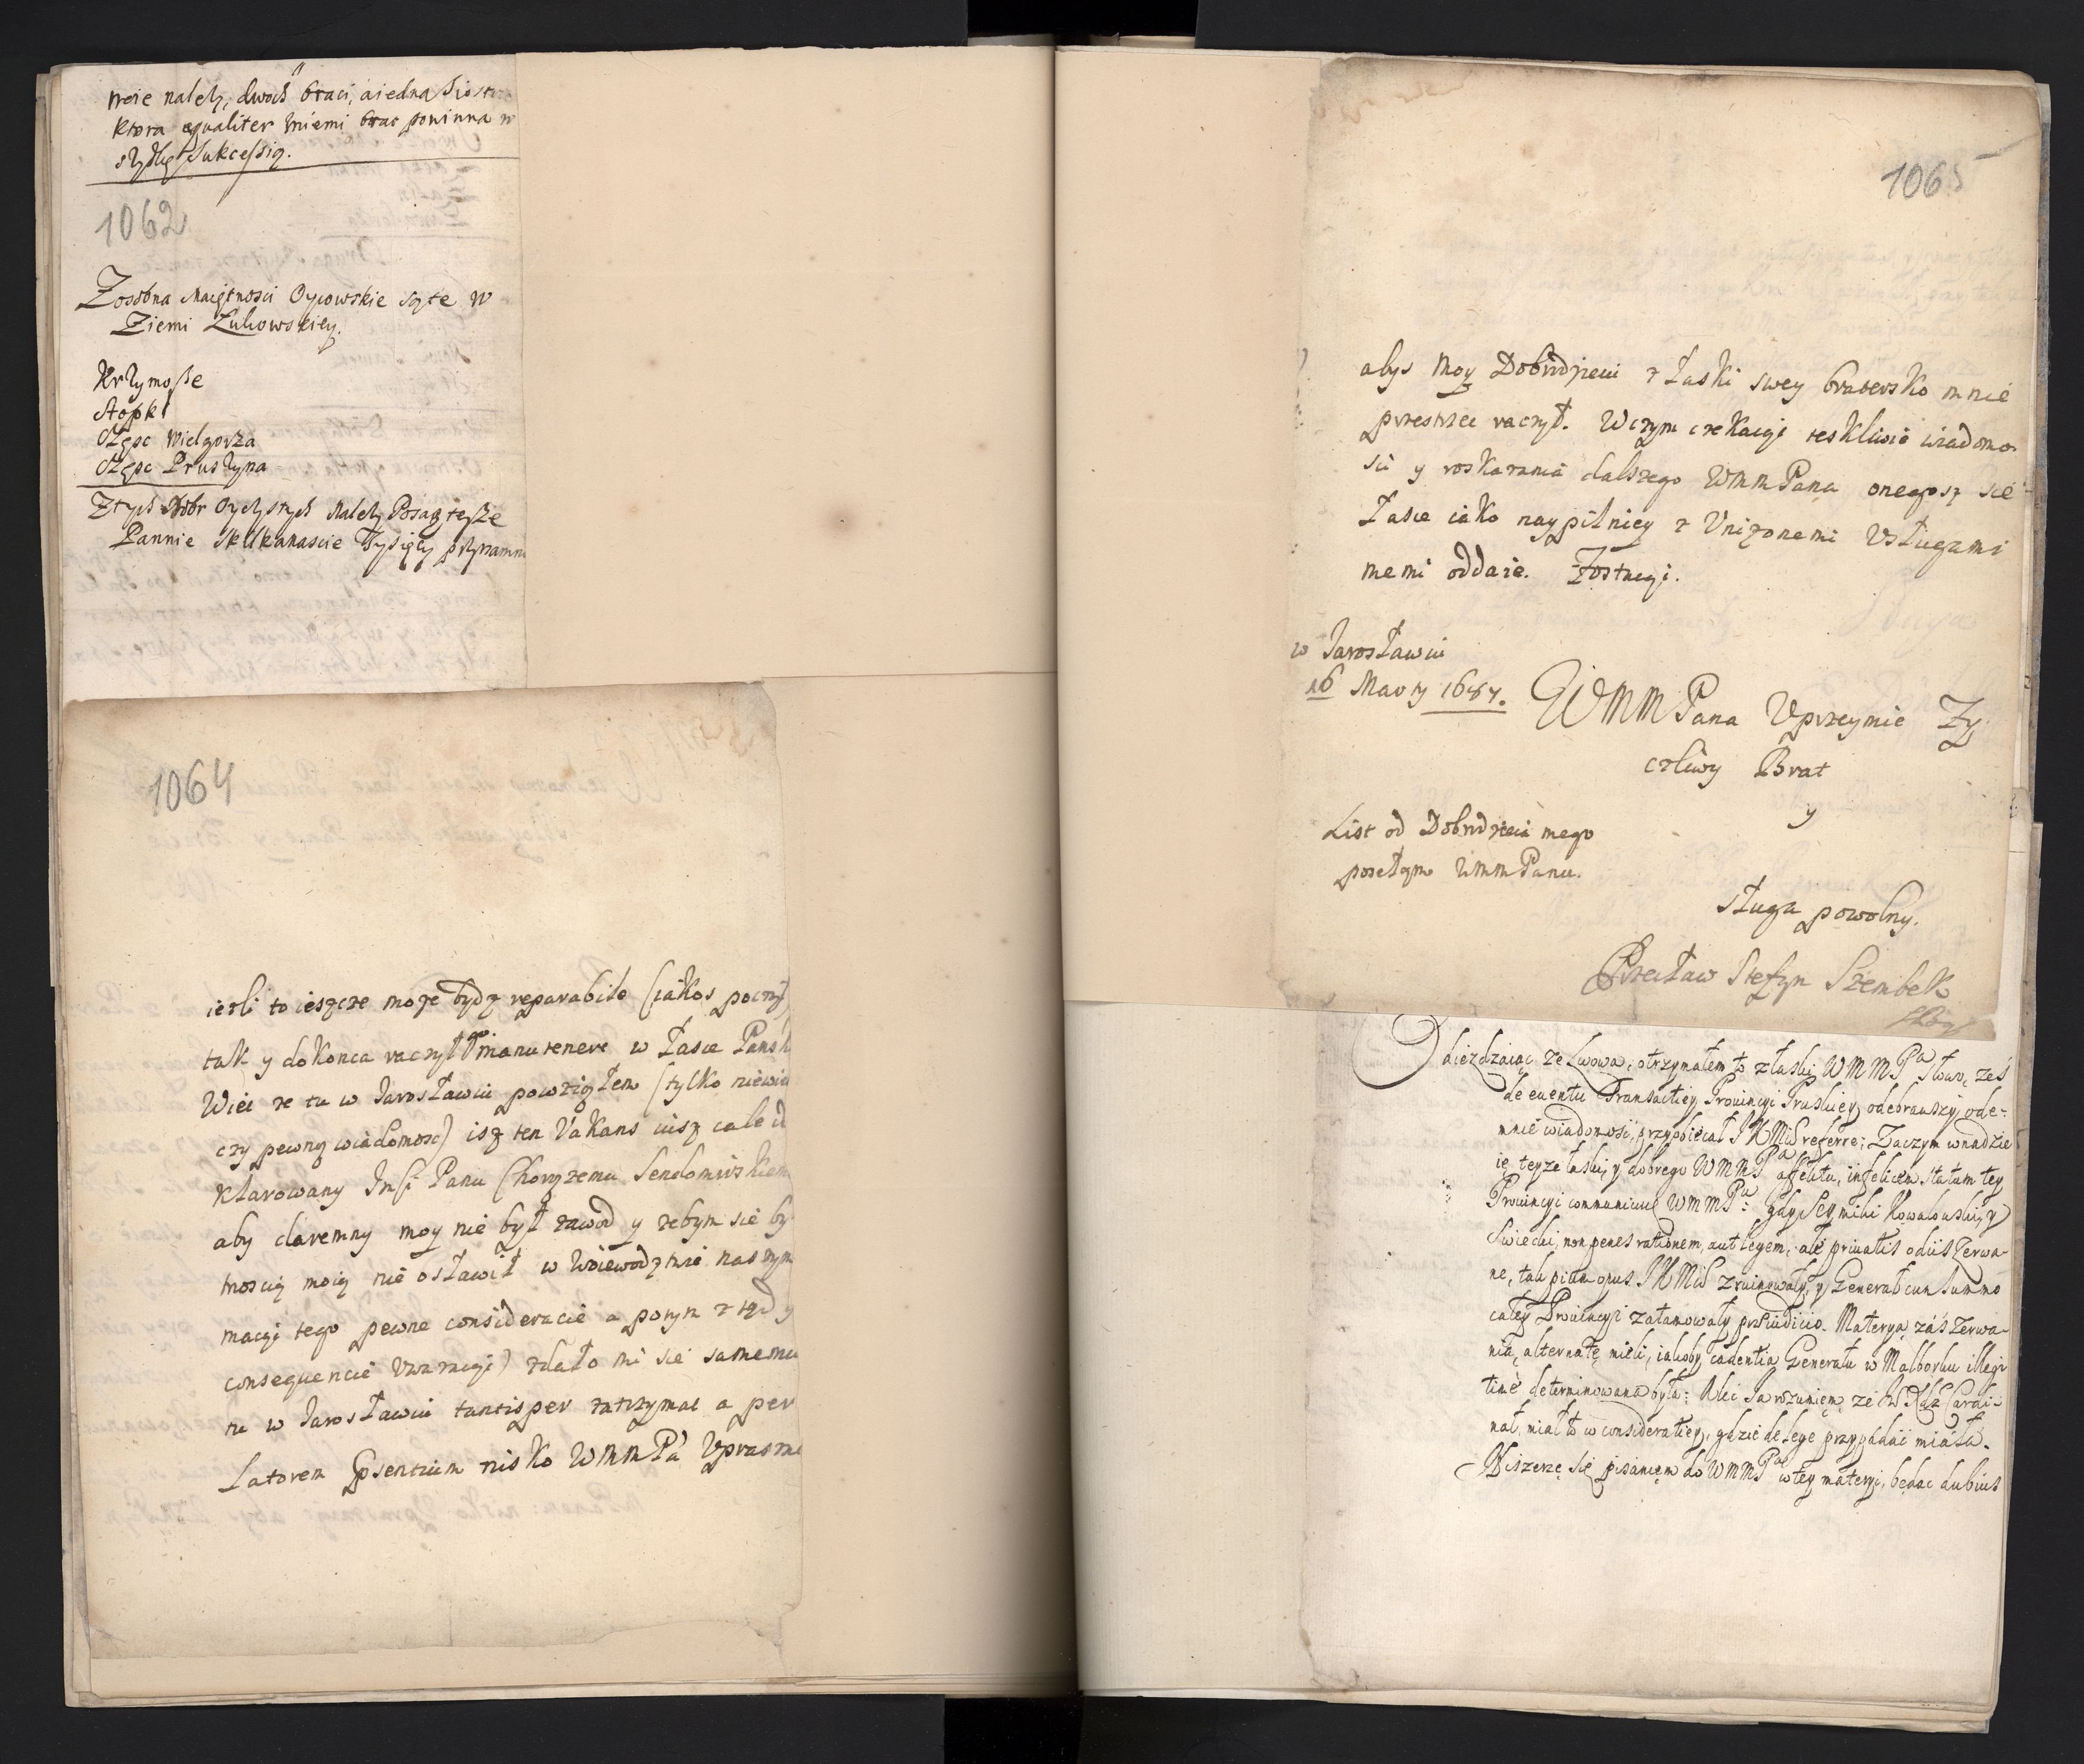 należy, dwoch braci, a iedna Siostra
ktora equaliter zniemi brac powinna
Sukcessią.
1062
Zosobna Maiętnosci Oycowskie sąte w
Ziemi Łukowskiey.
Krzymosze
Stopki
Częsc Wielgorza
Częsc Pruszyna
Ztych dobr Oyczystych należy Posag teyże
Pannie Tysięcy
1064
iezli to ieszcze może bydz reparabile (iakos poczoł)
tak y do Konca raczył manutenere w Łasce
Wiec ze tu w Jarosławiu powziąłem (tylko niewiem
czy pewną wiadomosc) isz ten Vakans iusz cale
Klarowany Panu Chorązemu Sendomirskiemu
aby daremny moy nie był zawod y zebym sie
moią nie osławił w Woiewodztwie naszym
maiąc tego pewne consideracie a potym z tąd y
consequencie Uwazaiąc) zdało mi sie samemu
tu w Jarosławiu tantisper zatrzymac a per
Latorem psentium nisko WMM Pa Upraszac
1065
abys Moy Dobrodzieiu z Łaski swey bratersko mnie
przestrzec raczył. W czym czekaiąc teskliwie wiadomo
sci y roskazania dalszego WMM Pana onegosz sie
Łasce iako naypilniey z Unizonemi Usługami
memi oddaie. Zostaiąc.
w Jarosławiu
16 1687.
WMM Pana Uprzeymie Zy
czliwy Brat
y
List od Dobrodzieia mego
posełam WMM Panu.
Sługa powolny.
Przecław Stefan Szembek
Odieżdzaiąc ze Lwowa, otrzymałem to z łaski WMMPa słowo, żeś
de euentu Transactiey Prouincyi Pruskiey odebrawszy ode-
mnie wiadomosć, przyobiecał JKMci referre; Zaczym wnadzie
ię teyze łaski, y dobrego WMMPa affektu, infelicem statum tey
Prouincyi communicuię WMMPu: gdy Seymiki Kowalewski, y
Swiecki, non penes rationem, aut legem, ale priuatis odiis zerwa-
ne, tak pium opus JKMci zruinowały, y Generał cum summo
całey Prouincyi zatamowały praeiudicio. Materyą záś zerwa-
nia, alternatę mieli, iakoby cadentia Generału w Malborku illegi
time determinowana była: Alec Ja rozumiem, że Cardi-
nał, miał to w consideratiey, gdzie de lege przypadać miáła.
szerzę się pisaniem do WMMPa wtey materyi, będąc dubius